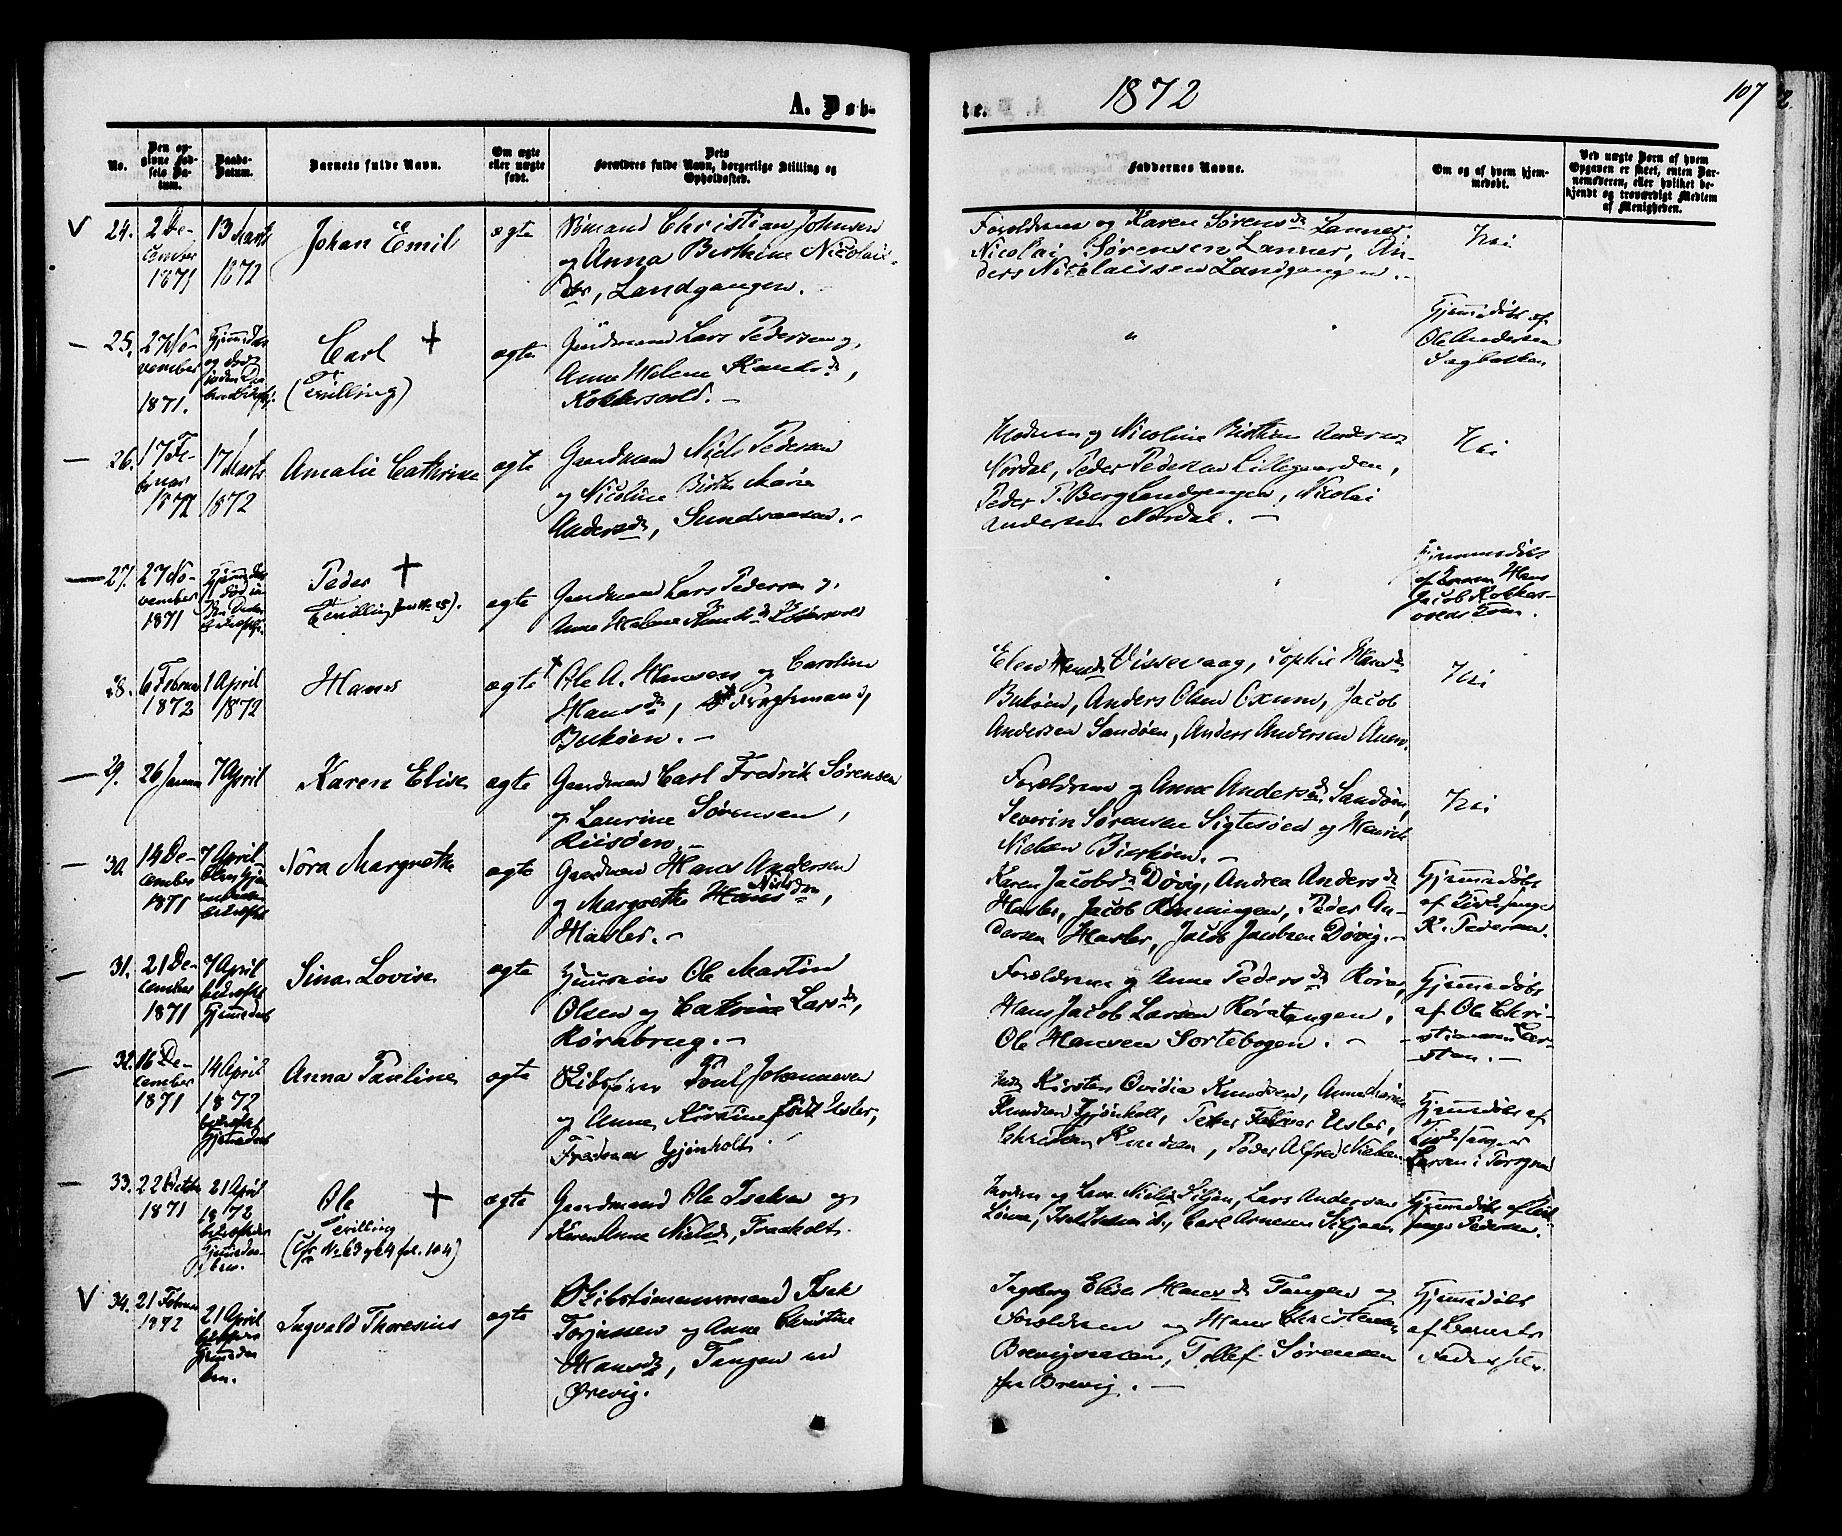 A. Døb-
te.
1872
107
No.
Den opgivne Fødsels Datum.
Daabs-Datum.
Barnets fulde Navn.
Om ægte eller uægte født.
Dets Forældres fulde Navn, borgerlige Stilling og Opholdssted.
Faddernes Navne.
Om og af hvem hjemmedøbt.
Ved uægte Børn af hvem Opgaven er skeet, enten Barnemoderen, eller hvilket bekjendt og troværdigt Medlem af Menigheden.
24. 2 De-
cember
1871
13 Marts
1872
Johan Emil
ægte
Christian Johnsen
og Anna Birthine Nicolais-
dr, Landgangen.
Forældrene og Karen Sørensdr Lanner,
Nicolai Sørensen Lanner, An-
ders Nicolaissen Landgangen.
Nei
25. 27 No-
vember
1871.
Carl +
(Tvilling)
ægte
Gaardmand Lars Pedersen og
Anne Helene Knudsdr,
Kokkersvold. -
Hjemmedøbt af
Ole Andersen
Sagbakken
26. 17 Fe-
bruar
1872
17 Marts
1872
Amalie Cathrine
ægte
Gaardmand Niels Pedersen
og Nicoline Birthe Marie
Andersdr, Sundsaasen. -
Moderen og Nicoline Birthine Andersdr
Nordal, Peder Pedersen Lillegaarden,
Peder P. Berg Landgangen, Nicolai
Andersen Nordal. -
Nei
27. 27 No-
vember
1871
Peder +
Tvilling (see No 25).
ægte
Gaardmand Lars Pedersen og
Anne Helene Knudsdr Kokkersvold
Hjemmedøbt
af Hans
Jacob Kokkers-
volds
28. 6 Februar
1872
1 April
1872
Hans
ægte
Ole A. Hansen og Caroline
Hansdr,
Bukøen. -
Elen Hansdr Vissevaag, Sophie Hansdr
Bukøen, Anders Olsen Oxum, Jacob
Andersen Sandøen, Anders Andersen Auen.
Nei
29. 26 Januar
7 April
Karen Elise
ægte
Gaardmand Carl Fredrik Sørensen
og Laurine Sørensen,
Riisøen. -
Forældrene og Anne Andersdr Sandøen,
Severin Sørensen Sigtesøen og Henrik
Nielsen Bierkøen. -
Nei
30. 14 De-
cember
1871
7 April
Nora Margrethe
ægte
Gaardmand Hans Andersen
og Margrethe Hansdr Nielsdtr,
Hasler. -
Karen Jacobsdr Døvig, Andrea Andersdr
Hasler, Jacob Rønningen, Peder An-
dersen Hasler, Jacob Jacobsen Døvig. -
Hjemmedøbt
af Kirkesanger
K. Pedersen.
31. 21 De-
cember
1871
7 April
bekræftet
Hjemmedaab
Sina Lovise
ægte
Huusmand Ole Martin
Olsen og Cathrine Larsdr,
Rørabrug. -
Forældrene og Anne Pedersdr Røra,
Hans Jacob Larsen Røratangen,
Ole Hansen Sortebogen. -
Hjemmedøbt
af Ole Chri-
stiansen
32. 16 De-
cember
1871
14 April
1872
bekræftet
Hjemmedaab
Anna Pauline
ægte
Skibsfører Poul Johannesen
og Anne Kirstine født Usler,
Frednes Gjønholt.
Kirsten Ovidia Knudsen, Anne Marie
Knudsen Gjønholt, Petter Usler,
Christen Knudsen, Peder Alfred Nielsen
Hjemmedøbt af
Kirkesanger
Larsen i Porsgrund
33. 22 October
1871
21 April
1872
Ole +
Tvilling
(Cfr No 63 og 64 fol. 104)
ægte
Gaardmand Ole Isaksen og
Karen Anne Nielsdr, Traaholt.
Lars Andersen
Carl Arnesen
Hjemmedøbt af Kirke-
sanger Pedersen.
34. 21 Februar
1872
21 April
Ingvald Thoresius
ægte
Skibstømmermand Isak
Torjussen og Anne Christine
Hansdr, Tangen ved
Ørevig.
Ingeborg Elise Hansdr Tangen og
Forældrene og Hans Christensen
Tollef Sørensen
fra Brevig. -
Hjemmedøbt
af